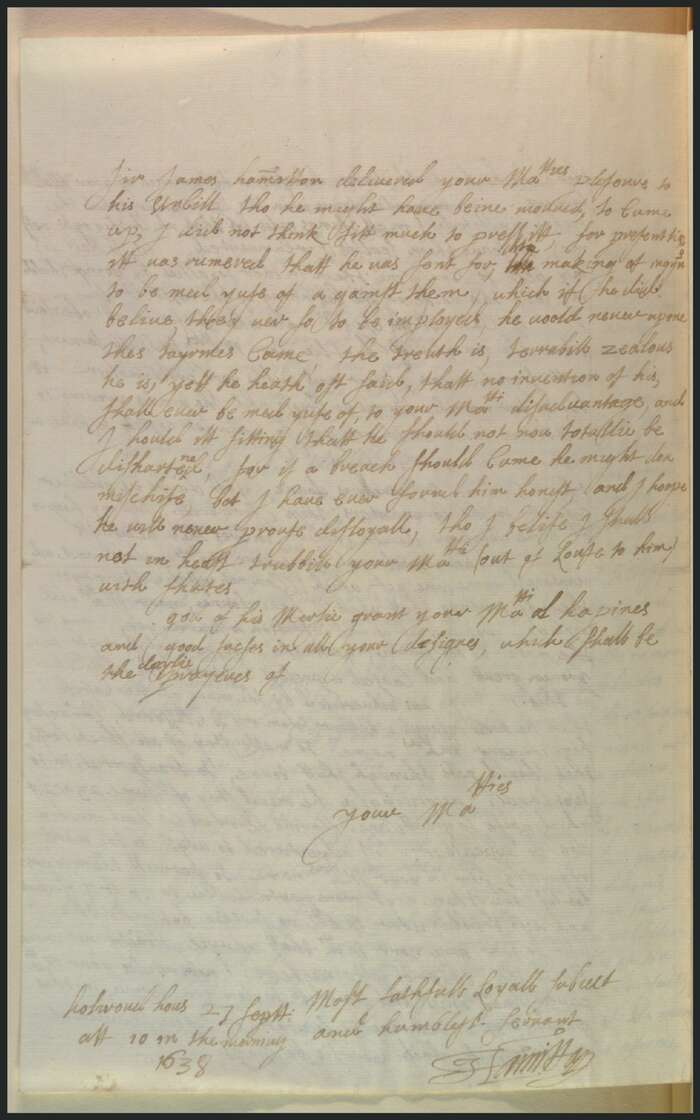 Sir James hamilton delivered your Matties plesours to
his Unkill tho he might have beine moved, to Came
up, I did not think fitt much to press itt, for presentlie
itt was rumored thatt he was sent for, the making of
to be med yuse of a gainst them, which if he did
belive, they wer so to be imployed, he woold never upone
thes tayrmes Came the treuth is, terrabill zealous
he is, yett he heath oft said, thatt no invention of his,
shall ever be med yuse of, to your Matti disadvantage, and
I hould itt fitting thatt he should not nou totallie be
for if a breach should Came he might dou
mischife, bot I have ever found him honest, and I hoope
he will never prouve disloyall, tho I belife I shall
not in heast trubbill your Matti (out of Loufe to him)
with shutes
god of his Mersie grant your Matti al hapines
and good suckses in all your designes, which shall be
the daylie prayeres of
your Matties
Most faithfull Loyall subiect
and humblest servant
Hamilton
holyroud hous 27 Septt.
att 10 in the morning
1638